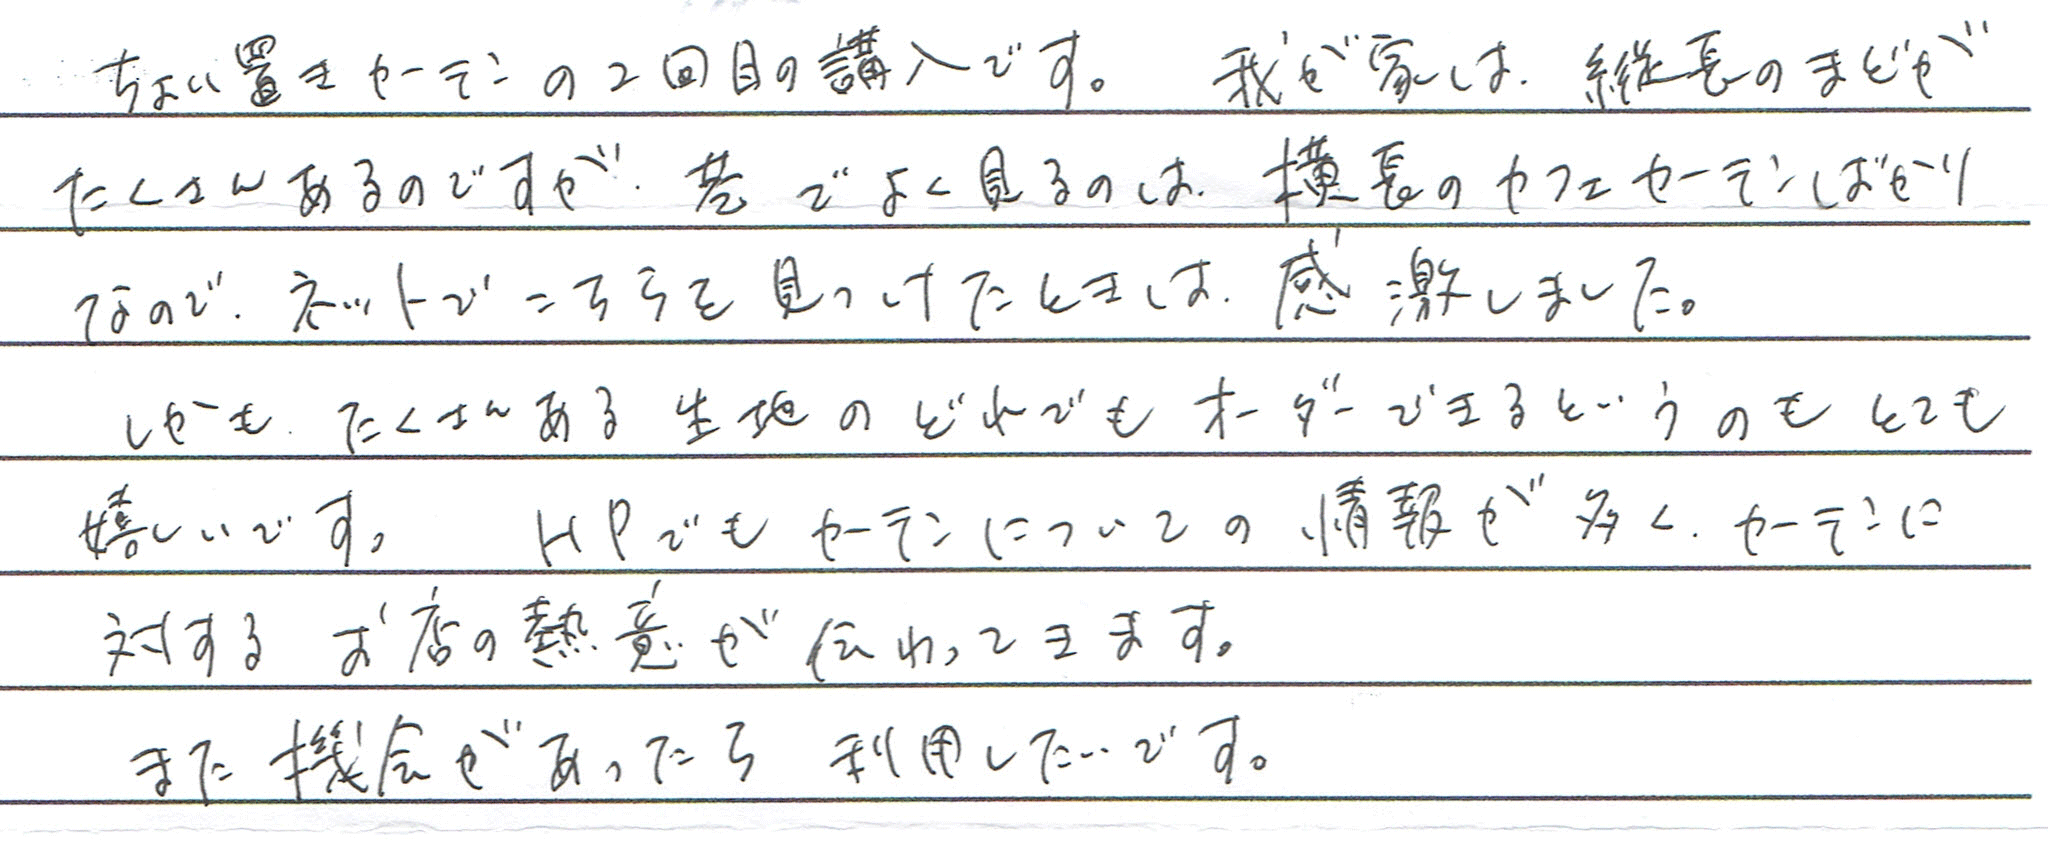 ちょい置きカーテンの2回目の講入です。 我が家は、縦長のまどが
たくさんあるのですが、巷でよく見るのは、横長のカフェカーテンばかり
なので、ネットでこちらを見つけたときは、感激しました。
しかも、たくさんある生地のどれでもオーダーできるというのもとても
嬉しいです。 HPでもカーテンについての情報が多く、カーテンに
対するお店の熱意が伝わってきます。
また機会があったら利用したいです。